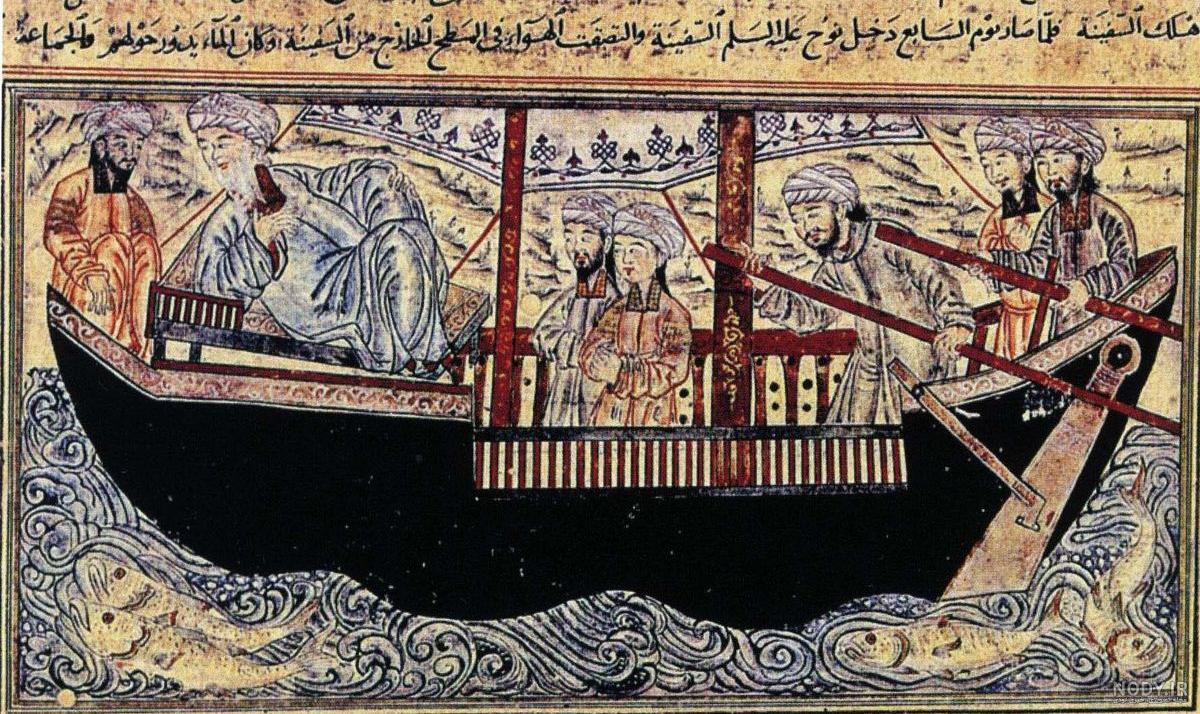 هلك السفينة فلمّا صار يوم السابع دخل نوح عليه السلم السفينة والتصقت الهواء في السطح الخارج من السفينة وكان الماء يدور حولهم والجماعة
NODY.IR